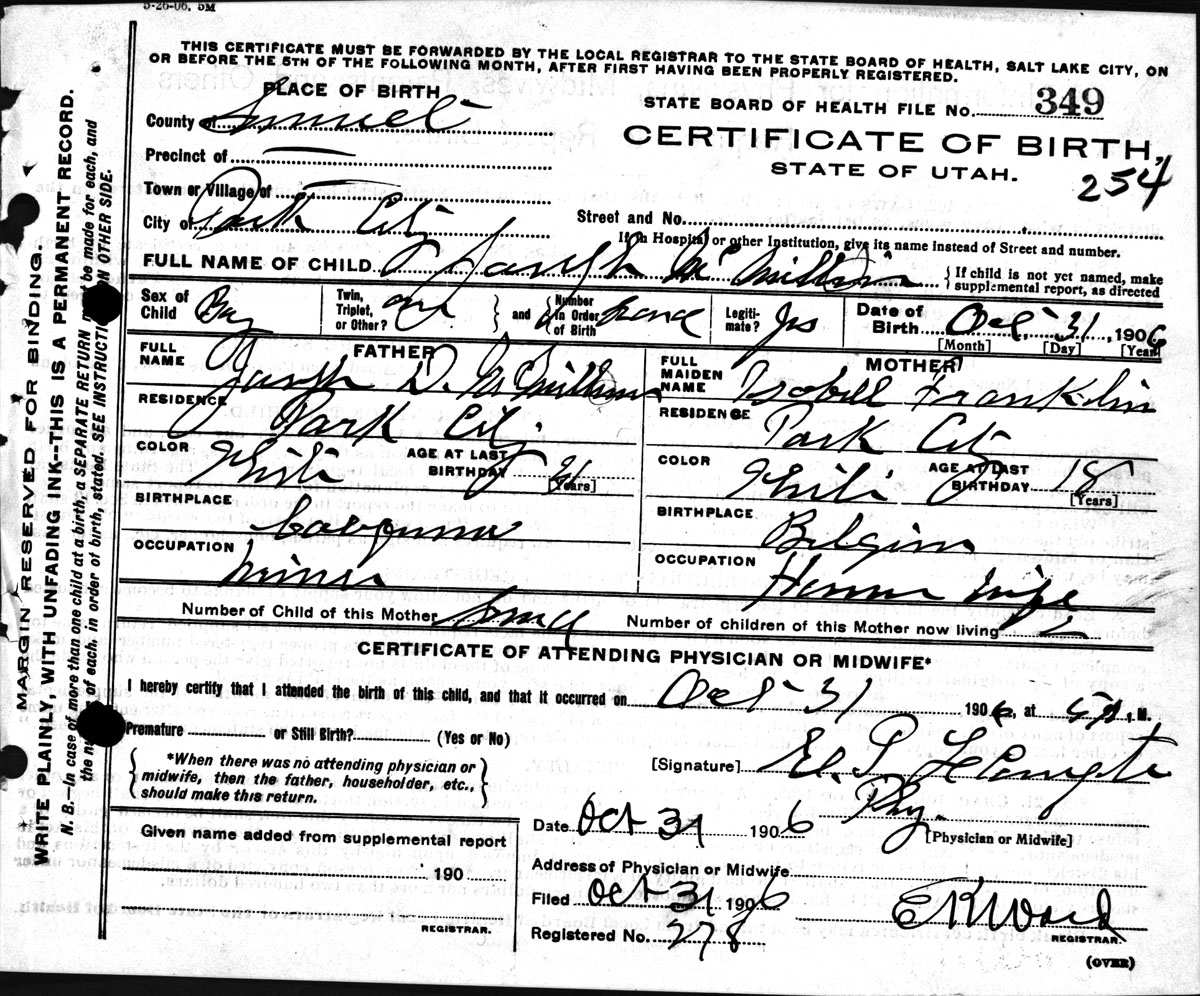 5-26-06. 5M
THIS CERTIFICATE MUST BE FORWARDED BY THE LOCAL REGISTRAR TO THE STATE BOARD OF HEALTH, SALT LAKE CITY, ON
OR BEFORE THE 5TH OF THE FOLLOWING MONTH, AFTER FIRST HAVING BEEN PROPERLY REGISTERED.
PLACE OF BIRTH
STATE BOARD OF HEALTH FILE No. 349
County of
CERTIFICATE OF BIRTH,
Precinct of
STATE OF UTAH.
254
Town or Village of
City of Park City
Street and No.
If in Hospital or other Institution, give its name instead of Street and number.
FULL NAME OF CHILD Joseph McMillin
{ If child is not yet named, make
supplemental report, as directed
Sex of Child Boy
Twin, Triplet, or Other?
and Number in Order of Birth
Legitimate? Yes
Date of Birth Oct 31 1906
[Month] [Day] [Year]
FATHER
FULL NAME Joseph D. McMillin
RESIDENCE Park City
COLOR White
AGE AT LAST BIRTHDAY
[Years]
BIRTHPLACE
OCCUPATION miner
MOTHER
FULL MAIDEN NAME Isobell Franklin
RESIDENCE Park City
COLOR White
AGE AT LAST BIRTHDAY 18
[Years]
BIRTHPLACE Belgium
OCCUPATION House wife
Number of Child of this Mother
Number of children of this Mother now living
CERTIFICATE OF ATTENDING PHYSICIAN OR MIDWIFE*
I hereby certify that I attended the birth of this child, and that it occurred on Oct 31 1906, at M.
Premature or Still Birth? (Yes or No)
*When there was no attending physician or
midwife, then the father, householder, etc.,
should make this return.
[Signature]
Phy.
[Physician or Midwife]
Date Oct 31 1906
Address of Physician or Midwife
Filed Oct 31 1906
E K Ward
REGISTRAR.
Registered No. 278
(OVER)
Given name added from supplemental report
190
REGISTRAR.
MARGIN RESERVED FOR BINDING
WRITE PLAINLY, WITH UNFADING INK--THIS IS A PERMANENT RECORD.
N. B.--In case of more than one child at a birth, a SEPARATE RETURN must be made for each, and
the of each, in order of birth, stated. SEE INSTRUCTION ON OTHER SIDE.